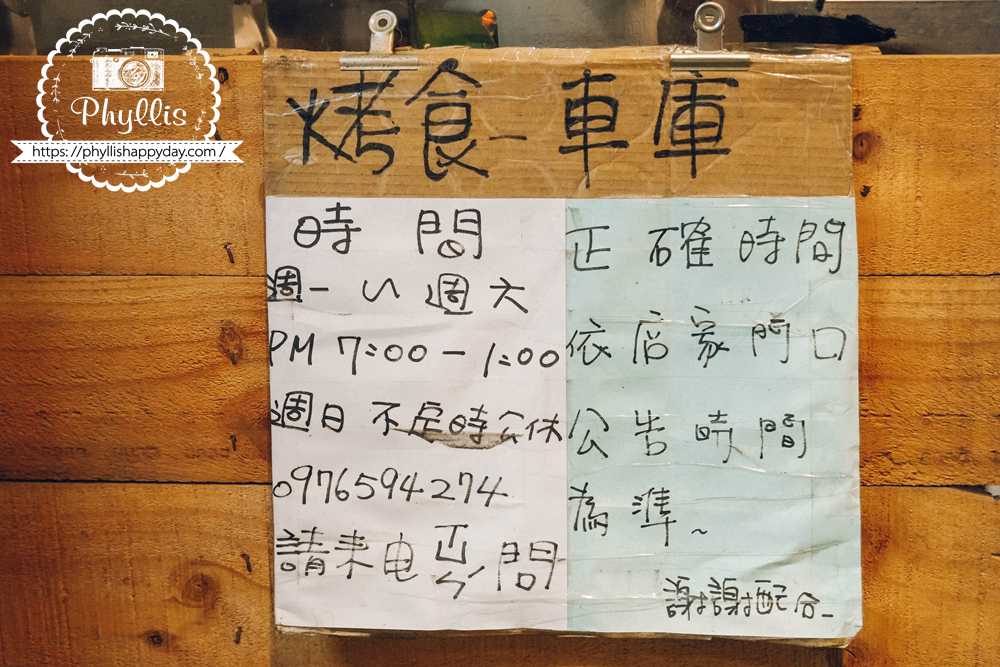 Phyllis
https://phyllishappyday.com/
烤食_車庫
時間
週一~週六
PM 7:00-1:00
週日不定時公休
0976594274
請來电問
正確時間
依店家門口
公告時間
為準~
謝謝配合_